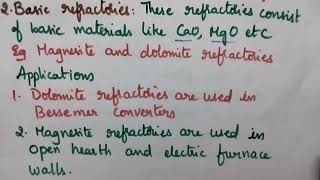 2. Basic refractories: These refractories consist
of basic materials like CaO, MgO etc
Eg Magnesite and dolomite refractories
Applications
1. Dolomite refractories are used in
Bessemer converters
2. Magnesite refractories are used in
open hearth and electric furnace
walls.